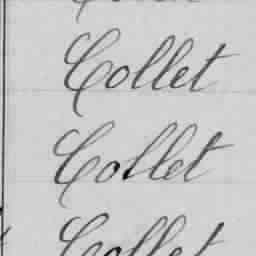 Collet
Collet
Collet